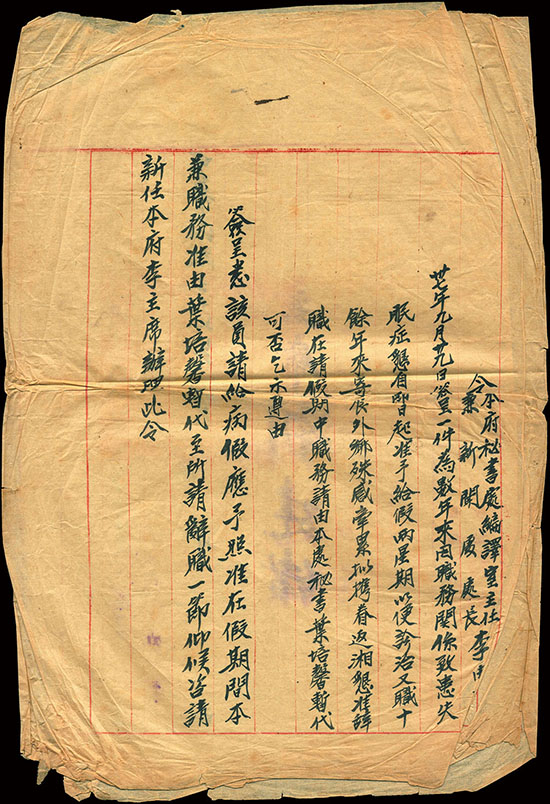 令本府秘書處編譯室主任
兼新聞處處長 李
卅七年九月廿九日簽呈一件為數年來因職務關係致患失
眠症懇自即日起准予給假兩星期以便診治又職十
餘年來寄居外鄉殊感牽累拟携眷返湘懇准辞
職在請假期中職務請由本處秘書葉培馨暫代
可否乞示遵由
簽呈悉該員請給病假應予照准在假期間本
兼職務准由葉培馨暫代至所請辭職一節仰候咨請
新任本府李主席辦理此令